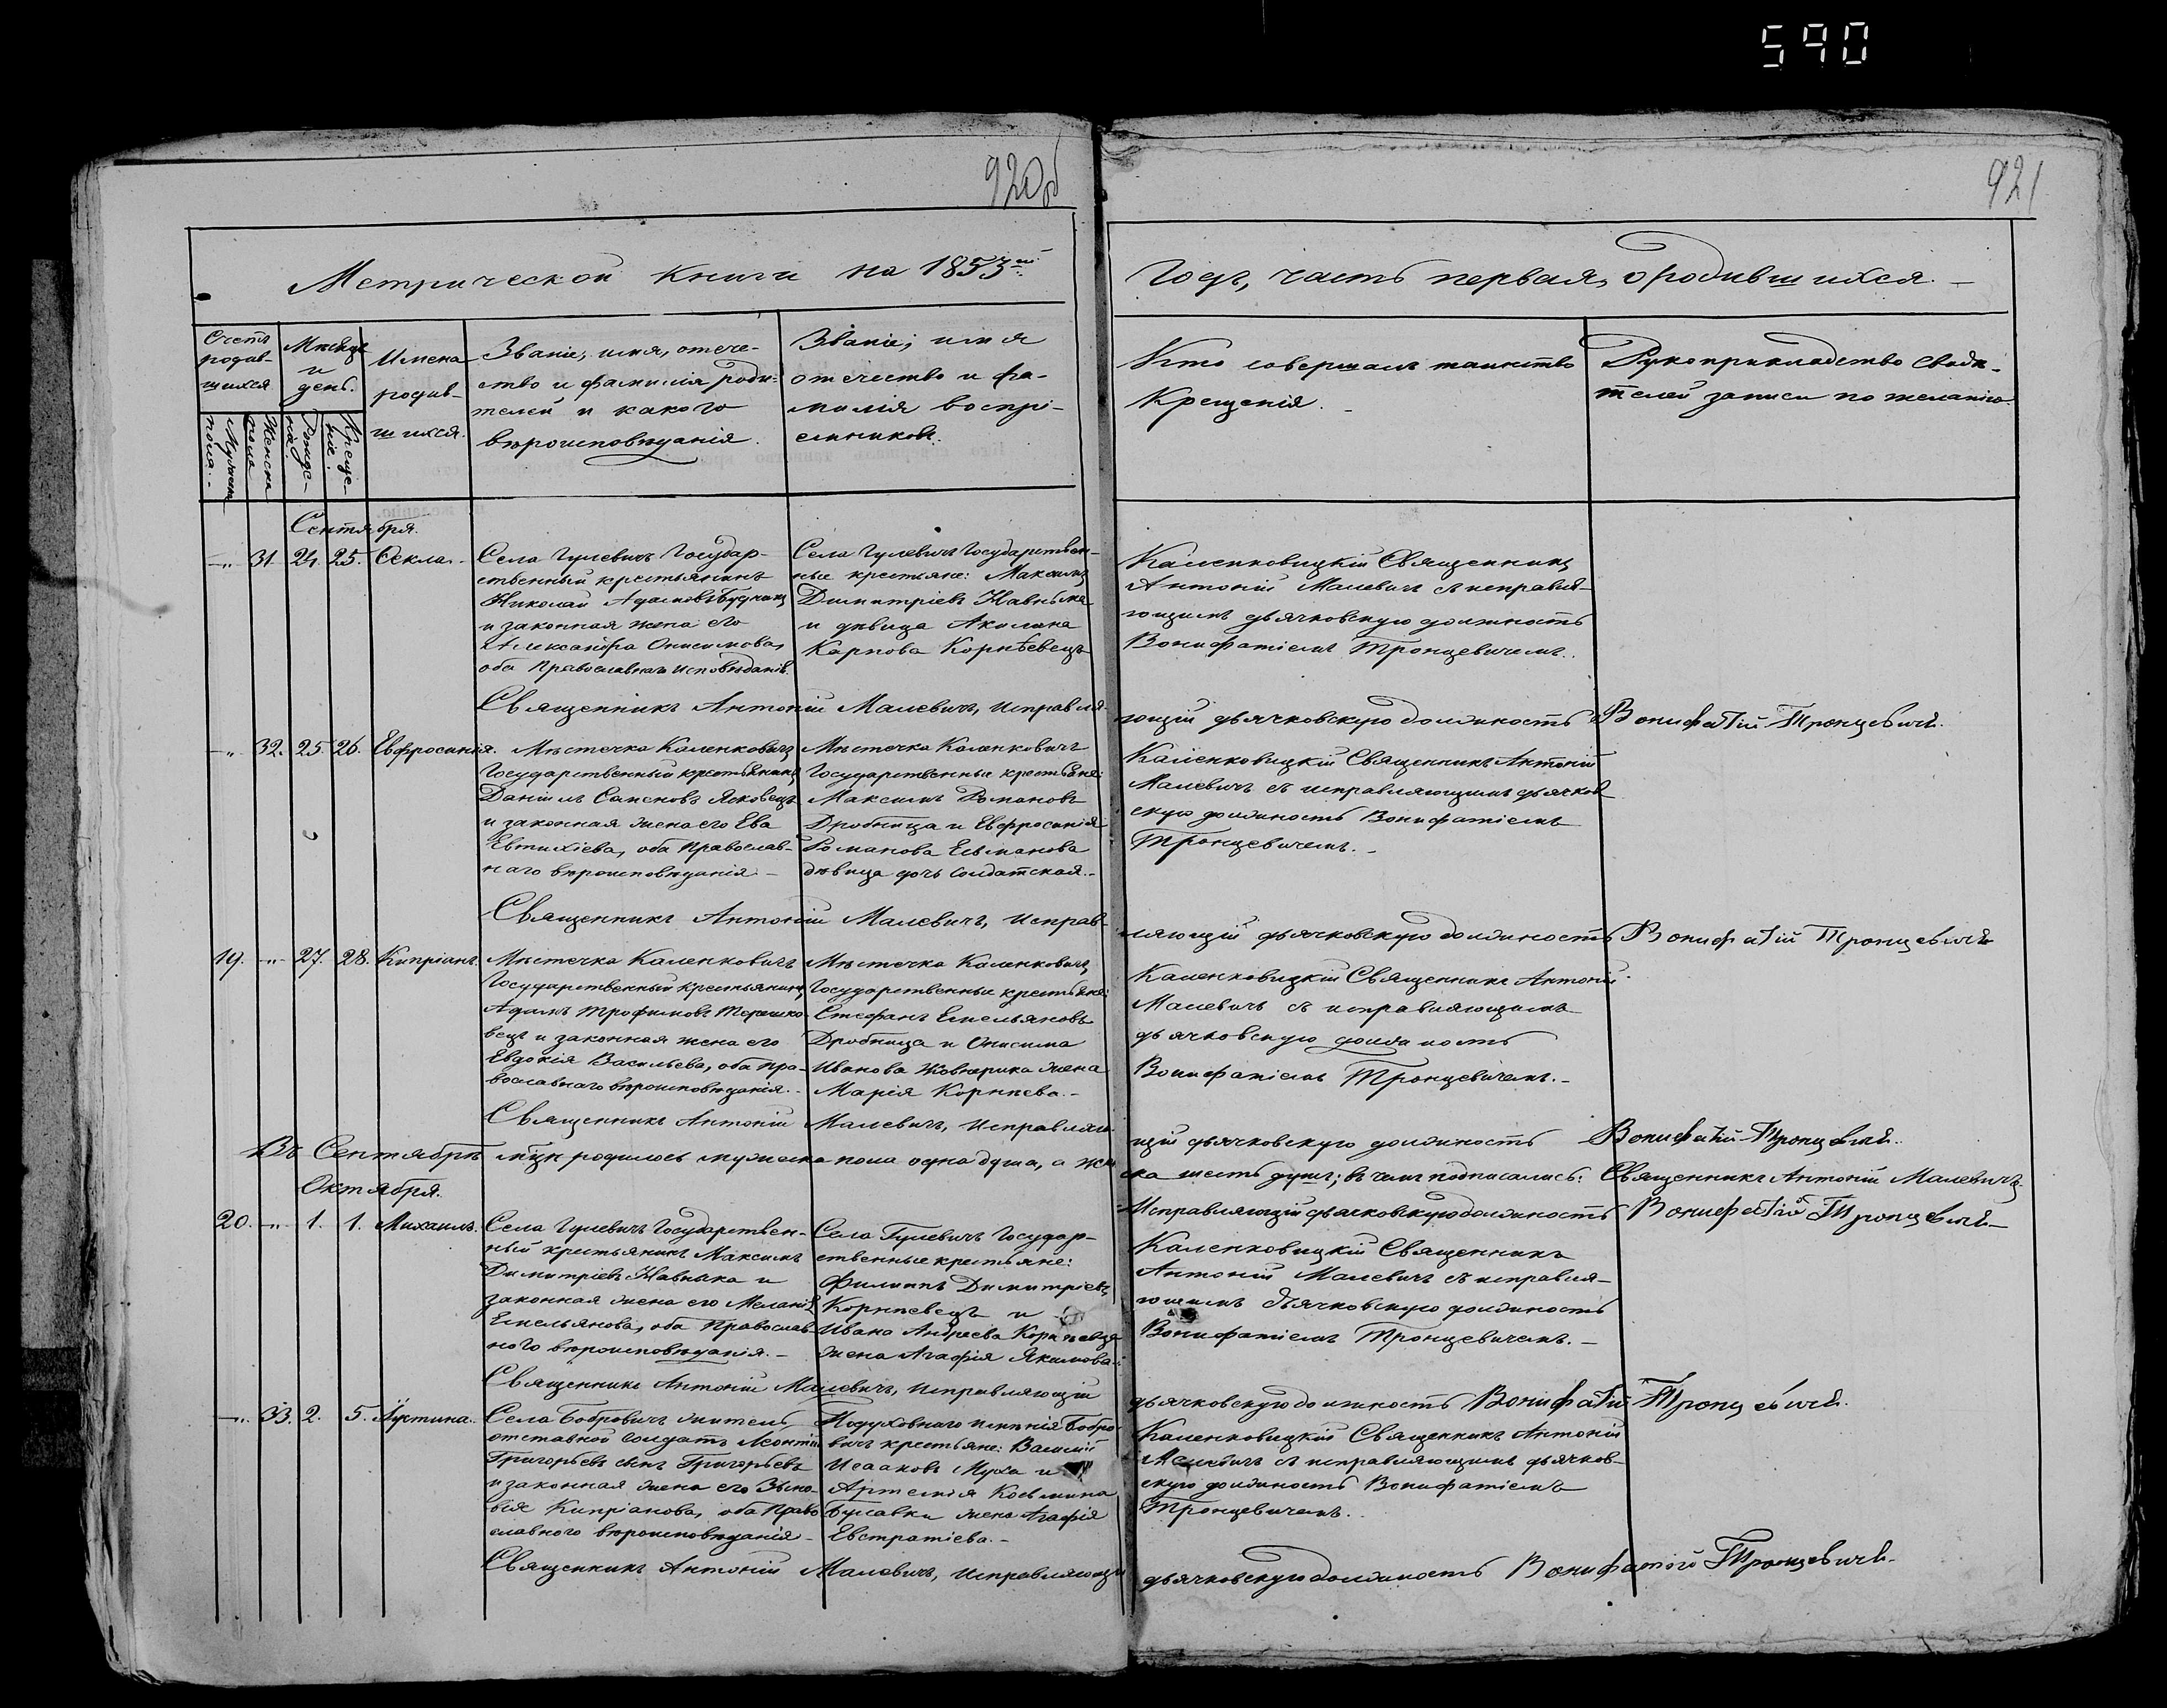 590
920об
921
Метрической книги на 1853й
Годъ, часть первая, о родившихся.
Счетъ родив-
шихся
Мужеска
пола.
Женска
пола
Мѣсяцъ
и
день.
Рожде-
нія.
Креще-
нія.
Имена
родив-
шихся.
Званіе, имя, отече-
ство и фамилія роди-
телей и какого
вѣроисповѣданія.
Званіе, имя
отечество и фа-
милія воспрі-
емниковъ.
Кто совершалъ таинство
Крещенія.
Рукоприкладство свидѣ-
телей записи по желанію.
Сентября.
—„— 31 24. 25. Ѳекла.
Села Гулевичъ Государ-
ственный крестьянинъ
Николай Адамовъ Будникъ
и законная жена его
Александра Онисимова,
оба Православнаго исповѣданія.
Села Гулевичъ Государствен-
ные крестьяне: Максимъ
Димитріевъ Навныка
и дѣвица Акилина
Карпова Корнѣевецъ
Каленковицкій Священникъ
Антоній Малевичъ съ исправля-
ющимъ дьячковскую должность
Вонифатіемъ Тронцевичемъ.
Священникъ Антоній Малевичъ, исправля-
ющій дьячковскую должность Вонифатій Тронцевичъ.
—„— 32. 25. 26. Евфросинія.
Мѣстечка Каленковичъ
Государственный крестьянинъ
Даніилъ Саженовъ Ясковецъ
и законная жена его Ева
Евтихіева, оба Православ-
наго вѣроисповѣданія.
Мѣстечка Каленковичъ
Государственные крестьяне:
Максимъ Романовъ
Дробница и Евфросинія
Романова Ельманова
дѣвица дочь солдатская.
Каленковицкій Священникъ Антоній
Малевичъ съ исправляющимъ дьячков-
скую должность Вонифатіемъ
Тронцевичемъ.
Священникъ Антоній Малевичъ, исправ-
ляющій дьячковскую должность Вонифатій Тронцевичъ
19. —„— 27. 28. Кипріанъ.
Мѣстечка Каленковичъ
Государственный крестьянинъ
Адамъ Трофимовъ Терешко-
вецъ и законная жена его
Евдокія Васильева, оба пра-
вославнаго вѣроисповѣданія.
Мѣстечка Каленковичъ
Государственные крестьяне:
Стефанъ Емельяновъ
Дробница и Онисима
Иванова Жовнерика жена
Марія Корнѣева.
Каленковицкій Священникъ Антоній
Малевичъ съ исправляющимъ
дьячковскую должность
Вонифатіемъ Тронцевичемъ.
Священникъ Антоній Малевичъ, исправляю-
щій дьячковскую должность Вонифатій Тронцевичъ.
Въ Сентябрѣ мѣсяцѣ родилось мужеска пола одна душа, а жен-
ска шесть душъ; въ чемъ подписались: Священникъ Антоній Малевичъ
Исправляющій дьячковскую должность Вонифатій Тронцевичъ
Октября.
20. —„— 1. 1. Михаилъ.
Села Гулевичъ Государствен-
ный крестьянинъ Максимъ
Димитріевъ Навныка и
законная жена его Меланія
Емельянова, оба Православ-
ного вѣроисповѣданія.
Села Гулевичъ Государ-
ственные крестьяне:
Филиппъ Димитріевъ
Корнѣевецъ и
Ивана Андреева Корнѣевца
жена Агафія Якимова.
Каленковицкій Священникъ
Антоній Малевичъ съ исправля-
ющимъ дьячковскую должность
Вонифатіемъ Тронцевичемъ.
Священникъ Антоній Малевичъ, исправляющій
дьячковскую должность Вонифатій Тронцевичъ.
—„— 33. 2. 5. Іустина.
Села Бобровичъ житель
отставной солдатъ Леонтій
Григорьевъ сынъ Григорьевъ
и законная жена его Зѣно-
вія Кипріанова, оба Право-
славного вѣроисповѣданія.
Подуховнаго имѣнія Бобро-
вичъ крестьяне: Василій
Исааковъ Муха и
Артемія Косьмина
Булавки жена Агафія
Евстратіева.
Каленковицкій Священникъ Антоній
Малевичъ съ исправляющимъ дьячков-
скую должность Вонифатіемъ
Тронцевичемъ.
Священникъ Антоній Малевичъ, исправляющій
дьячковскую должность Вонифатій Тронцевичъ.